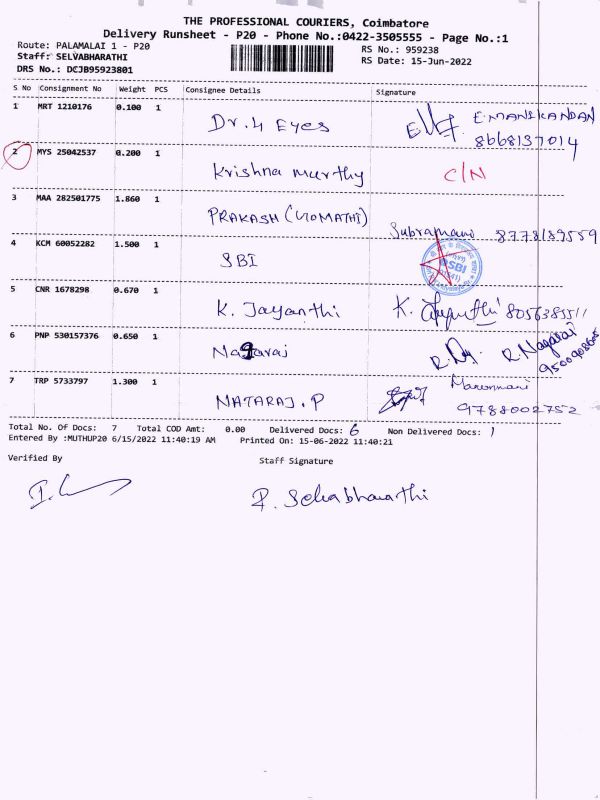 THE PROFESSIONAL COURIERS, Coimbatore
Delivery Runsheet - P20 - Phone No.:0422-3505555 - Page No.:1
Route: PALAMALAI 1 - P20 RS No.: 959238
Staff: SELVABHARATHI RS Date: 15-Jun-2022
DRS No.: DCJB95923801
S No Consignment No Weight PCS Consignee Details Signature
1 MRT 1210176 0.100 1 Dr. 4 Eyes E. MANIKANDAN
8668137014
2 MYS 25042537 0.200 1 Krishna murthy C/N
3 MAA 282501775 1.860 1 PRAKASH (GOMATHI) Subramani 8778189559
4 KCM 60052282 1.500 1 SBI SBI
5 CNR 1678298 0.670 1 K. Jayanthi K. 8056385511
6 PNP 530157376 0.650 1 Nagaraj R. Nagaraj
9500908605
7 TRP 5733797 1.300 1 NATARAJ. P
9788002752
Total No. Of Docs: 7 Total COD Amt: 0.00 Delivered Docs: 6 Non Delivered Docs: 1
Entered By :MUTHUP20 6/15/2022 11:40:19 AM Printed On: 15-06-2022 11:40:21
Verified By Staff Signature
P. Selvabharathi